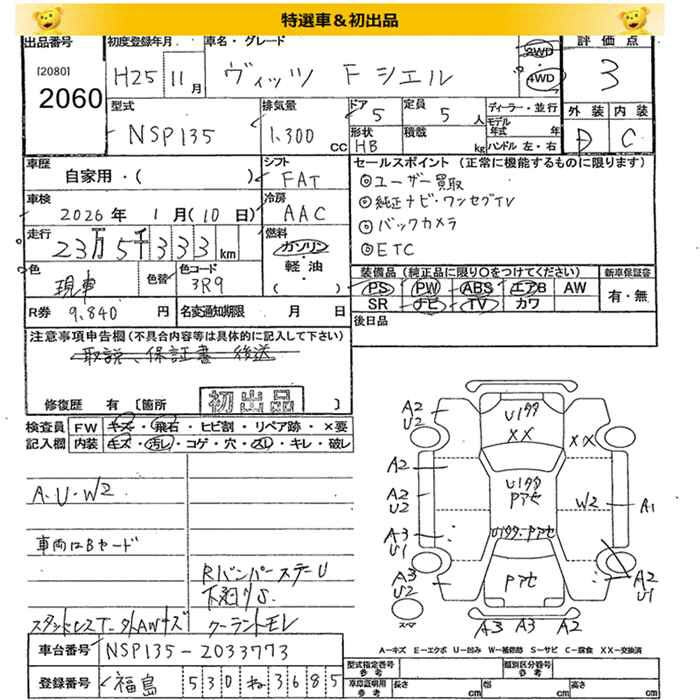 特選車&初出品
出品番号
[2080]
2060
初度登録年月
H25 11月
車名・グレード
ヴィッツ F シエル
2WD
・
4WD
評価点
3
型式
NSP135
排気量
1.300 CC
ドア 5
形状 HB
定員 5 人
積載 kg
ディーラー・並行
モデル年式 年
ハンドル 左・右
外装 内装
D C
車歴
自家用・( )
シフト
FAT
車検
2026年 1月(10日)
冷房
AAC
走行
23万5千333km
燃料
ガソリン
軽・油
( )
色
現車
色替
色コード
3R9
R券 9.840円
名変通知期限 月 日
セールスポイント(正常に機能するものに限ります)
◎ユーザー買取
◎純正ナビ・ワンセグTV
◎バックカメラ
◎ETC
装備品(純正品に限り○をつけてください)
新車保証書
PS PW ABS エアB AW
SR ナビ TV カワ
有・無
後日品
注意事項申告欄(不具合内容等は具体的に記入して下さい)
取説、保証書 後送
修復歴 有 [箇所 初出品 ]
検査員記入欄
FW キズ・飛石・ヒビ割・リペア跡・×要
内装 キズ・汚レ・コゲ・穴・スレ・キレ・破レ
A.U.W2
車両はBヤード
RバンパーステーU
下廻りS
クーラントモレ
車台番号 NSP135-2033773
登録番号 福島 530 ね 3685
A2
U2
A2
A2
U2
A3
U1
A3
U2
U1タタ
XX
XX
U1タタ
Pアセ
W2
A1
U1タタ・Pアセ
Pアセ
A2
U1
A3 A3 A2
A-キズ E-エクボ U-凹み W-補修跡 S-サビ C-腐食 XX-交換済
型式指定番号
参考
類別区分番号
参考
車庫証明用
参考
長さ cm
幅 cm
高さ cm